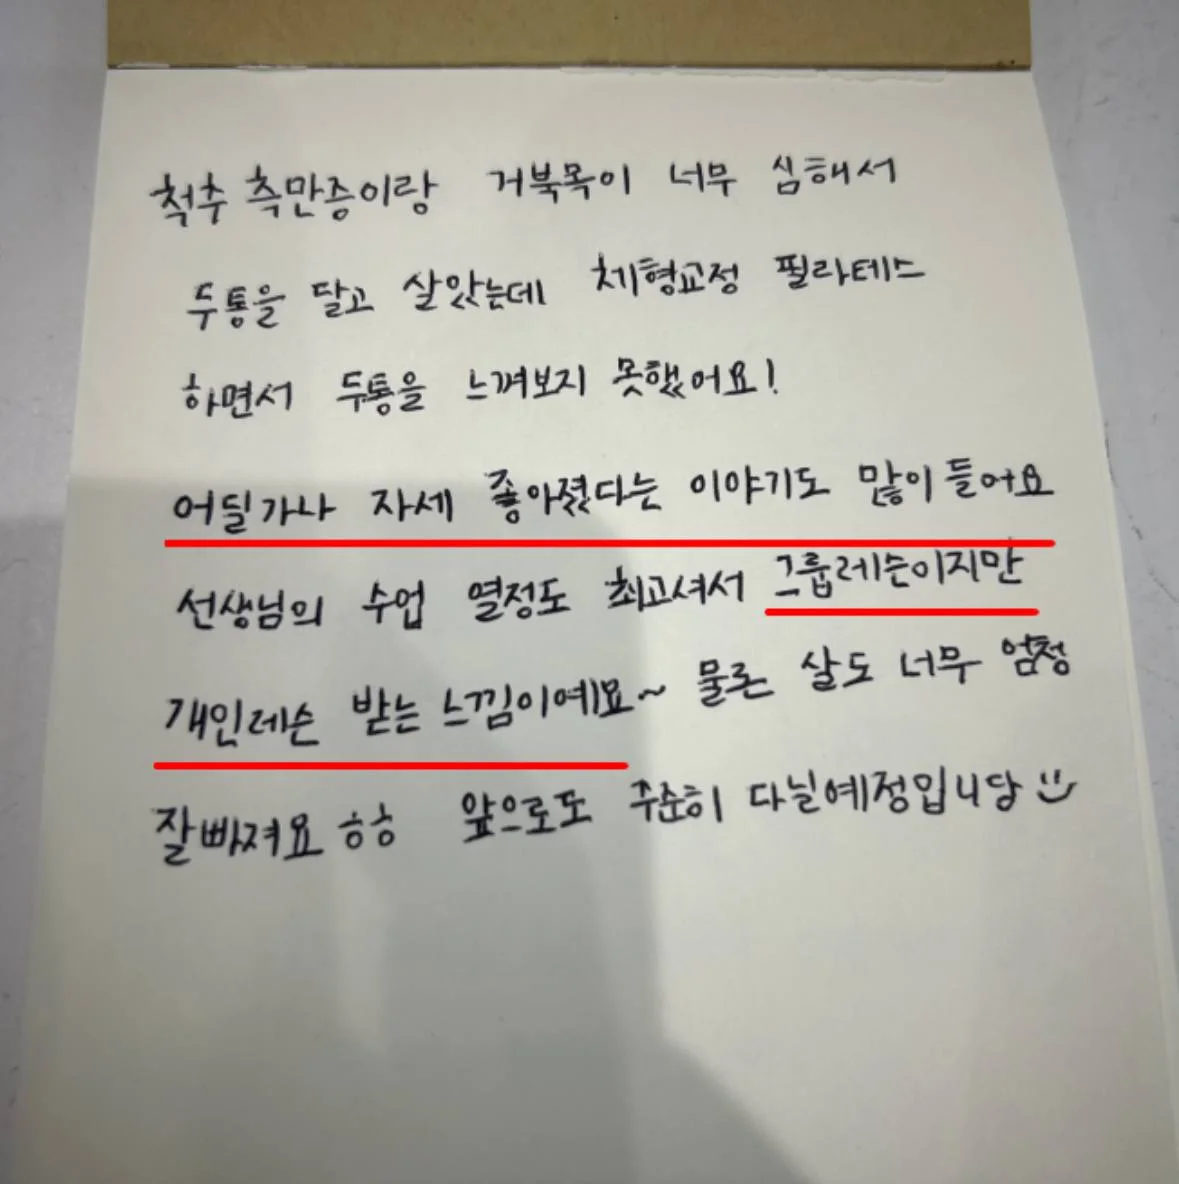 척추 측만증이랑 거북목이 너무 심해서
두통을 달고 살았는데 체형교정 필라테스
하면서 두통을 느껴보지 못했어요!
어딜가나 자세 좋아졌다는 이야기도 많이 들어요
선생님의 수업 열정도 최고셔서 그룹레슨이지만
개인레슨 받는 느낌이예요~ 물론 살도 너무 엄청
잘빠져요 ㅎㅎ 앞으로도 꾸준히 다닐예정입니당